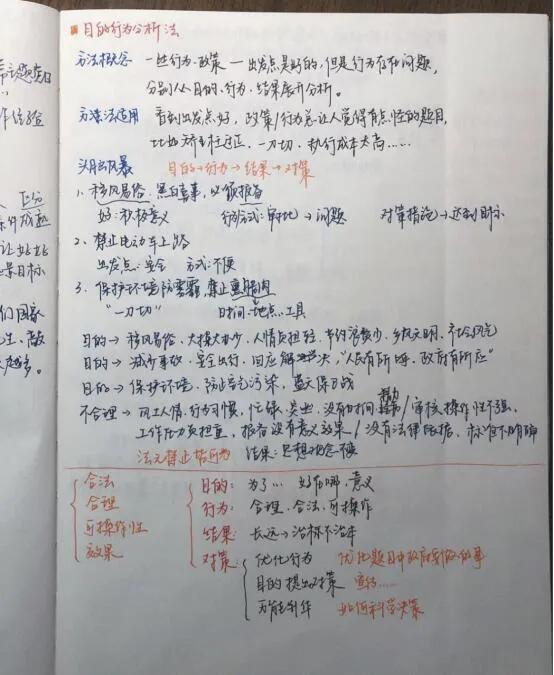 示题库目
作经验
区分
条件成熟
让站站
景目标
们国家
生、敲
越多。
目的行为分析法
方法概念 一些行为、政策 — 出发点是好的,但是行为存在问题,
分别从目的、行为、结果展开分析。
方法适用 看到出发点好,政策/行为总让人觉得有点怪的题目,
比如矫枉过正、一刀切、执行成本太高……
头脑风暴 目的→行为→结果→对策
1、移风易俗、黑白喜事,必须报备
好:积极意义 行为方式:审批→问题 对策措施→达到目标
2、禁止电动车上路
出发点:安全 方式:不便
3、保护环境防雾霾,禁止熏腊肉
"一刀切" 时间、地点、工具
目的→移风易俗、大操大办少、人情负担轻、节约浪费少、乡风文明、社会风气
目的→减少事故、安全出行、回应解决,"人民有所呼、政府有所应"
目的→保护环境、防止空气污染,蓝天保卫战
不合理→风土人情、行为习惯,忙碌、突出、没有时间精力/审核、操作性不强、
工作压力负担重,报备没有意义效果/没有法律依据、标准不明确
法无禁止皆可为 结果:思想观念不变
合法
合理
可操作性
效果
目的:为了… 好在哪,意义
行为:合理、合法、可操作
结果:长远→治标不治本
对策:优化行为 优化题目中政府要做的事
目的提出对策 宣传……
万能制作 如何科学决策